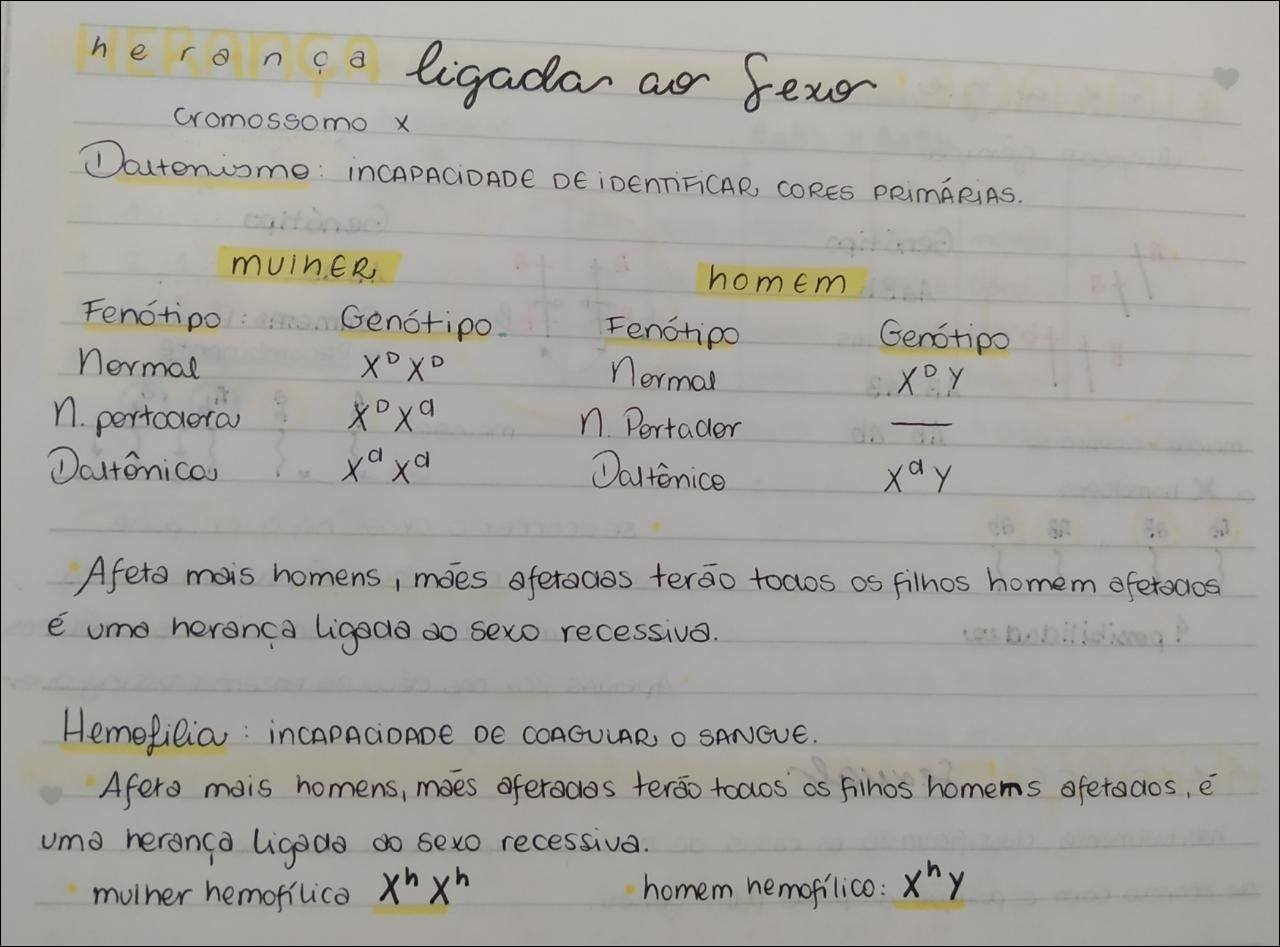 herança ligada ao sexo
Cromossomo X
Daltonismo: INCAPACIDADE DE IDENTIFICAR CORES PRIMÁRIAS.
MULHER homem
Fenótipo: Genótipo Fenótipo Genótipo
Normal XᴰXᴰ Normal XᴰY
N. portadora XᴰXᵈ N. Portador —
Daltônica XᵈXᵈ Daltônico XᵈY
• Afeta mais homens, mães afetadas terão todos os filhos homem afetados
é uma herança ligada ao sexo recessiva.
Hemofilia: INCAPACIDADE DE COAGULAR O SANGUE.
• Afeta mais homens, mães afetadas terão todos os filhos homens afetados, é
uma herança ligada ao sexo recessiva.
• mulher hemofílica XʰXʰ • homem hemofílico: XʰY